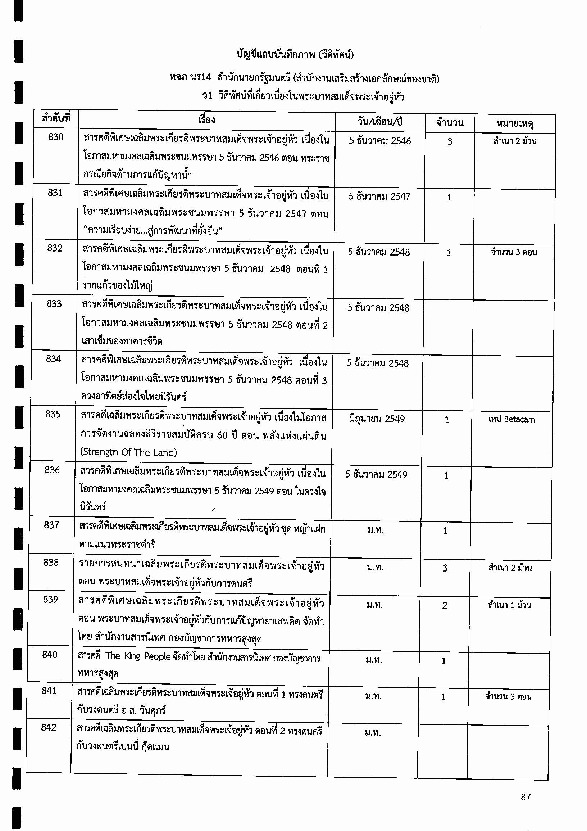 บัญชีแถบบันทึกภาพ (วีดิทัศน์)
หจภ นร14 สำนักนายกรัฐมนตรี (สำนักงานเสริมสร้างเอกลักษณ์ของชาติ)
วีดิทัศน์ที่เกี่ยวเนื่องในพระบาทสมเด็จพระเจ้าอยู่หัว
ลำดับที่ เรื่อง วัน/เดือน/ปี จำนวน หมายเหตุ
830 สารคดีพิเศษเฉลิมพระเกียรติพระบาทสมเด็จพระเจ้าอยู่หัว เนื่องใน 5 ธันวาคม 2546 3 สำเนา 2 ม้วน
โอกาสมหามงคลเฉลิมพระชนมพรรษา 5 ธันวาคม 2546 ตอน พระราช
กรณียกิจด้านการแก้ปัญหาน้ำ
831 สารคดีพิเศษเฉลิมพระเกียรติพระบาทสมเด็จพระเจ้าอยู่หัว เนื่องใน 5 ธันวาคม 2547 1
โอกาสมหามงคลเฉลิมพระชนมพรรษา 5 ธันวาคม 2547 ตอน
"ความเรียบง่าย...สู่การพัฒนาที่ยั่งยืน"
832 สารคดีพิเศษเฉลิมพระเกียรติพระบาทสมเด็จพระเจ้าอยู่หัว เนื่องใน 5 ธันวาคม 2548 3 จำนวน 3 ตอน
โอกาสมหามงคลเฉลิมพระชนมพรรษา 5 ธันวาคม 2548 ตอนที่ 1
รากแก้วของไม้ใหญ่
833 สารคดีพิเศษเฉลิมพระเกียรติพระบาทสมเด็จพระเจ้าอยู่หัว เนื่องใน 5 ธันวาคม 2548
โอกาสมหามงคลเฉลิมพระชนมพรรษา 5 ธันวาคม 2548 ตอนที่ 2
834 สารคดีพิเศษเฉลิมพระเกียรติพระบาทสมเด็จพระเจ้าอยู่หัว เนื่องใน 5 ธันวาคม 2548
โอกาสมหามงคลเฉลิมพระชนมพรรษา 5 ธันวาคม 2548 ตอนที่ 3
ดวงอาทิตย์ส่องใจไทยนิรันดร์
835 สารคดีเฉลิมพระเกียรติพระบาทสมเด็จพระเจ้าอยู่หัว เนื่องในโอกาส มิถุนายน 2549 1 เทป Betacam
การจัดงานฉลองสิริราชสมบัติครบ 60 ปี ตอน พลังแห่งแผ่นดิน
(Strength Of The Land)
836 สารคดีพิเศษเฉลิมพระเกียรติพระบาทสมเด็จพระเจ้าอยู่หัว เนื่องใน 5 ธันวาคม 2549 1
โอกาสมหามงคลเฉลิมพระชนมพรรษา 5 ธันวาคม 2549 ตอน ในดวงใจ
นิรันดร์
837 สารคดีพิเศษเฉลิมพระเกียรติพระบาทสมเด็จพระเจ้าอยู่หัว ชุด หญ้าแฝก ม.ท. 1
ตามแนวพระราชดำริ
838 รายการสนทนาเฉลิมพระเกียรติพระบาทสมเด็จพระเจ้าอยู่หัว ม.ท. 3 สำเนา 2 ม้วน
ตอน พระบาทสมเด็จพระเจ้าอยู่หัวกับการดนตรี
839 สารคดีพิเศษเฉลิมพระเกียรติพระบาทสมเด็จพระเจ้าอยู่หัว ม.ท. 2 สำเนา 1 ม้วน
ตอน พระบาทสมเด็จพระเจ้าอยู่หัวกับการแก้ปัญหายาเสพติด จัดทำ
โดย สำนักงานสารนิเทศ กองบัญชาการทหารสูงสุด
840 สารคดี The King People จัดทำโดย สำนักงานสารนิเทศ กองบัญชาการ ม.ท. 1
ทหารสูงสุด
841 สารคดีเฉลิมพระเกียรติพระบาทสมเด็จพระเจ้าอยู่หัว ตอนที่ 1 ทรงดนตรี ม.ท. 1 จำนวน 3 ตอน
กับวงดนตรี อ.ส. วันศุกร์
842 สารคดีเฉลิมพระเกียรติพระบาทสมเด็จพระเจ้าอยู่หัว ตอนที่ 2 ทรงดนตรี ม.ท.
กับวงดนตรีเบนนี่ กู๊ดแมน
87